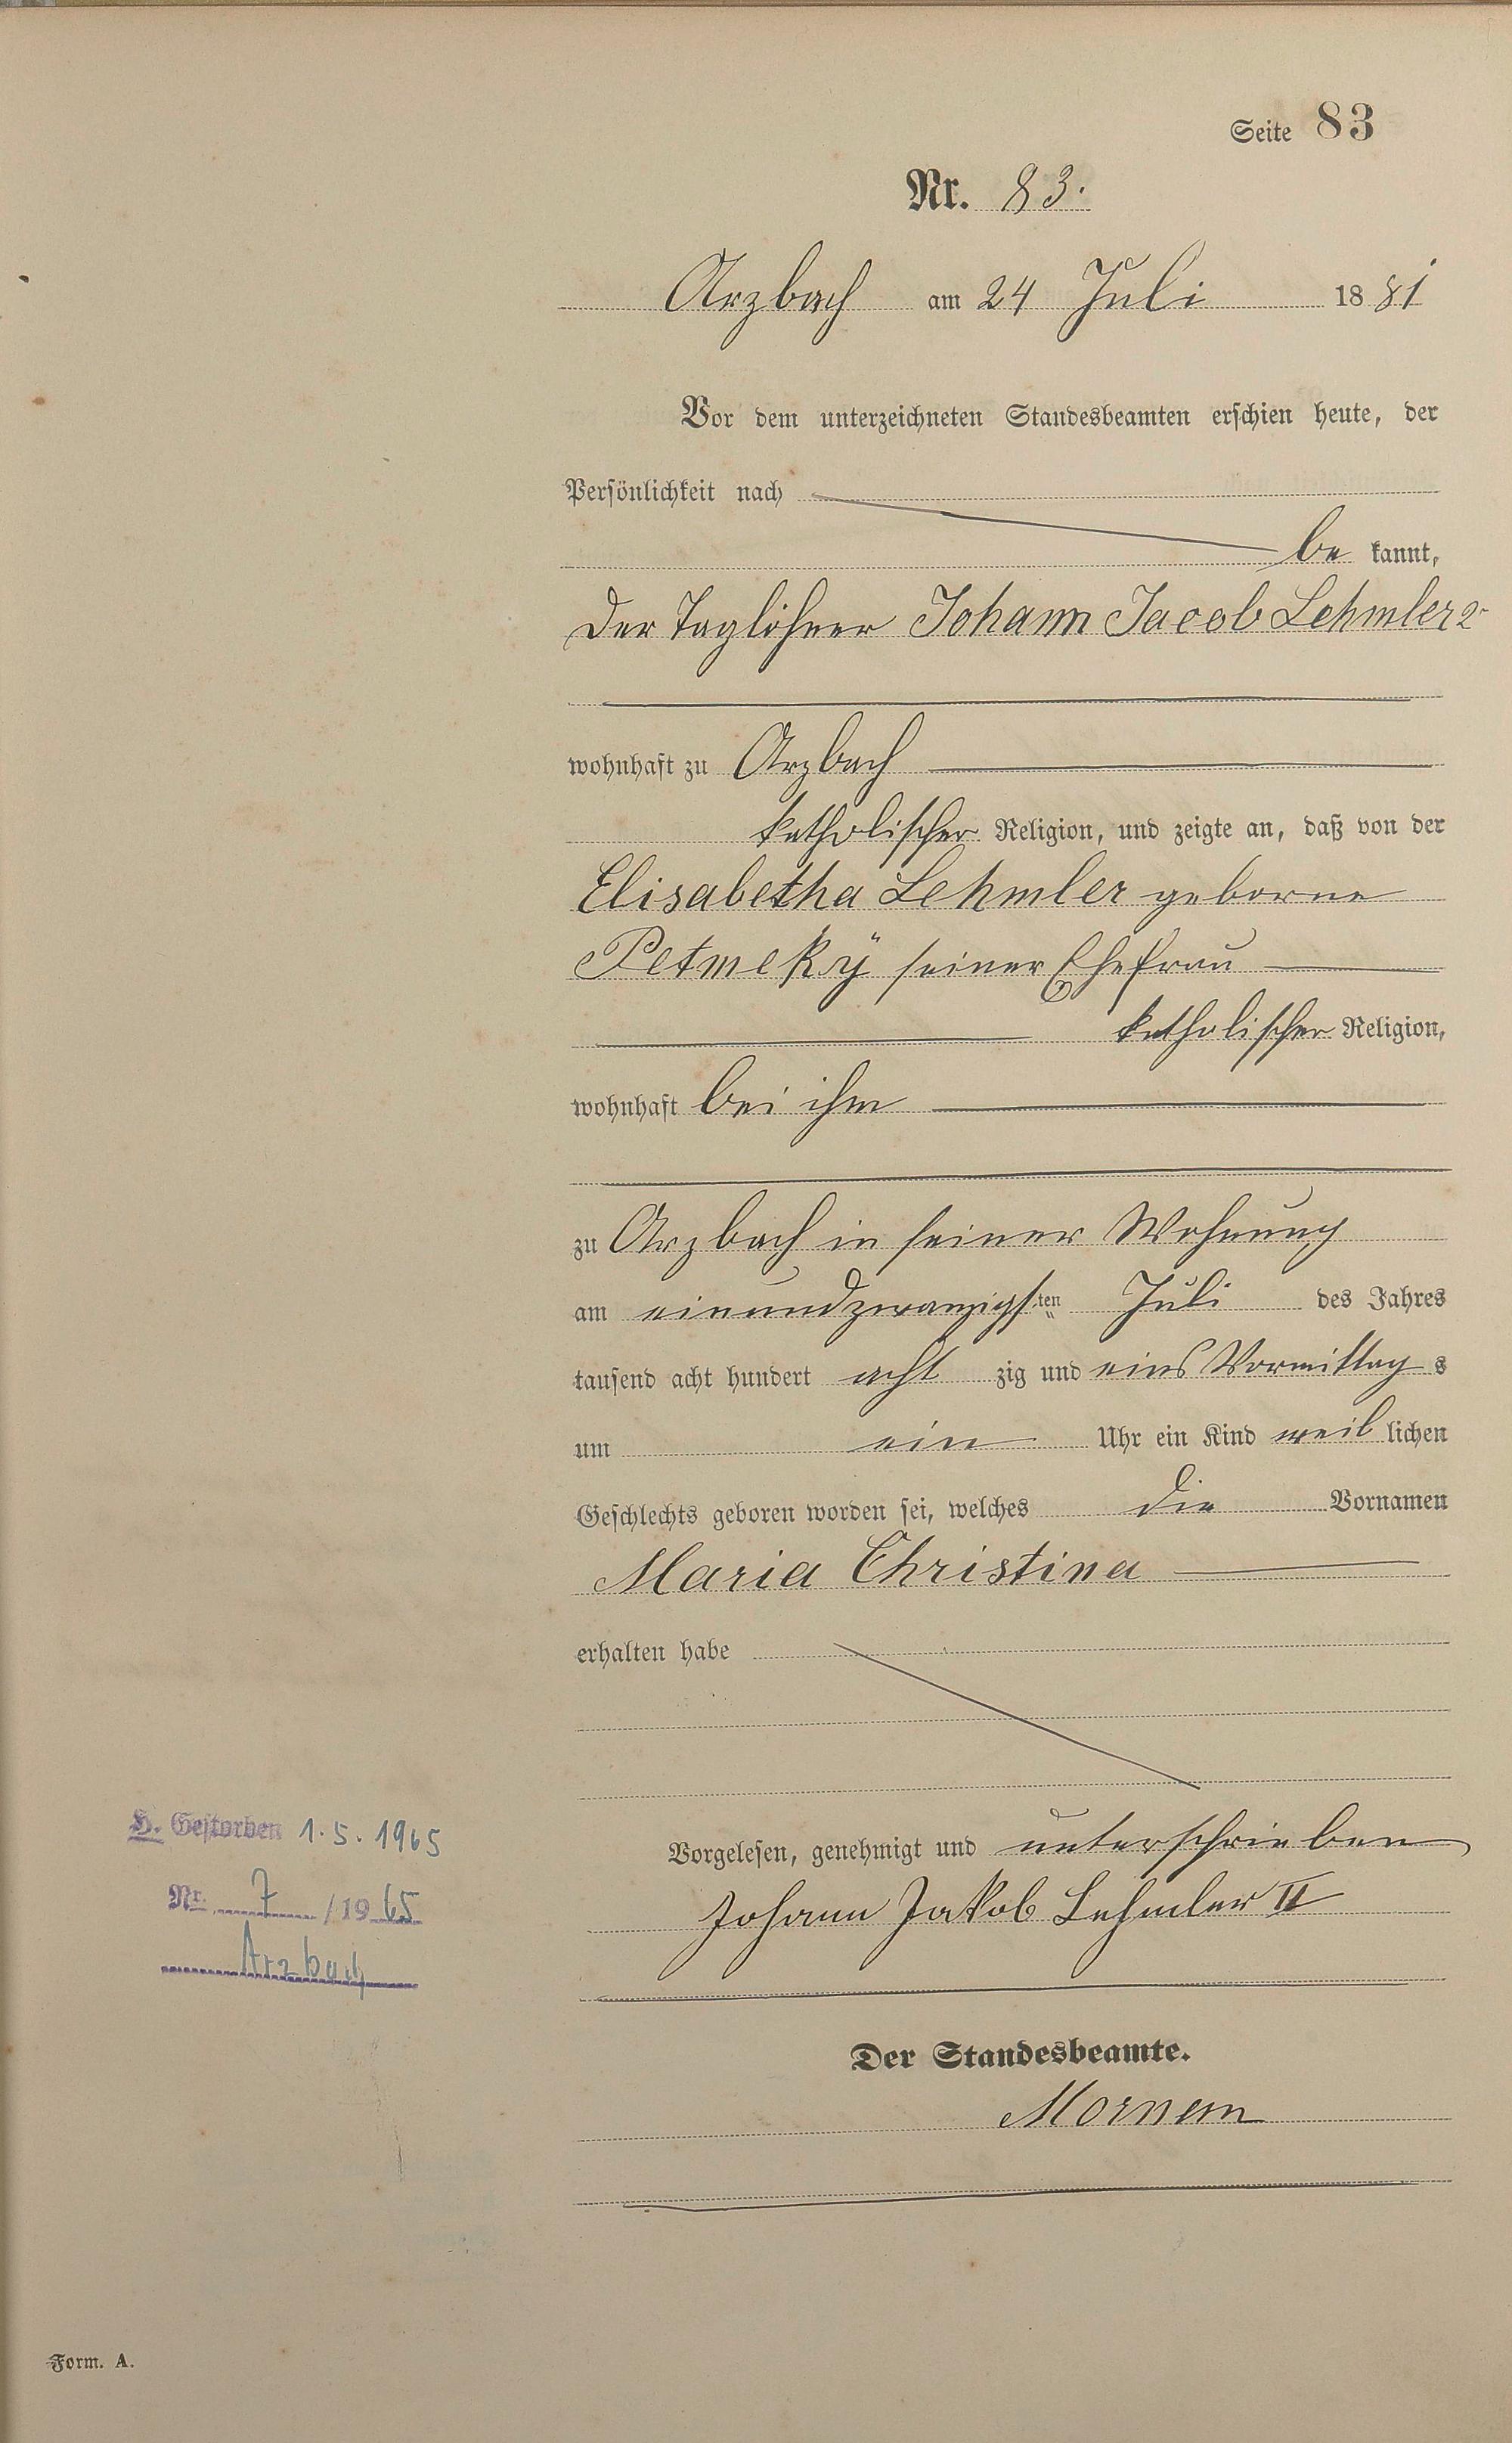 Seite 83
Nr. 83.
Arzbach am 24 Juli 1881
Vor dem unterzeichneten Standesbeamten erschien heute, der
Persönlichkeit nach
be kannt,
der Taglöhner Johann Jacob Lehmler 2r
wohnhaft zu Arzbach
katholischer Religion, und zeigte an, daß von der
Elisabetha Lehmler geborne
Petmekÿ seiner Ehefrau
katholischer Religion,
wohnhaft bei ihm
zu Arzbach in seiner Wohnung
am einundzwanzigsten Juli des Jahres
tausend acht hundert acht zig und eins Vormittag s
um ein Uhr ein Kind weib lichen
Geschlechts geboren worden sei, welches die Vornamen
Maria Christina
erhalten habe
Vorgelesen, genehmigt und unterschrieben
Johann Jakob Lehmler II
Der Standesbeamte.
H. Gestorben 1.5.1965
Nr. 7 / 1965
Arzbach
Form. A.